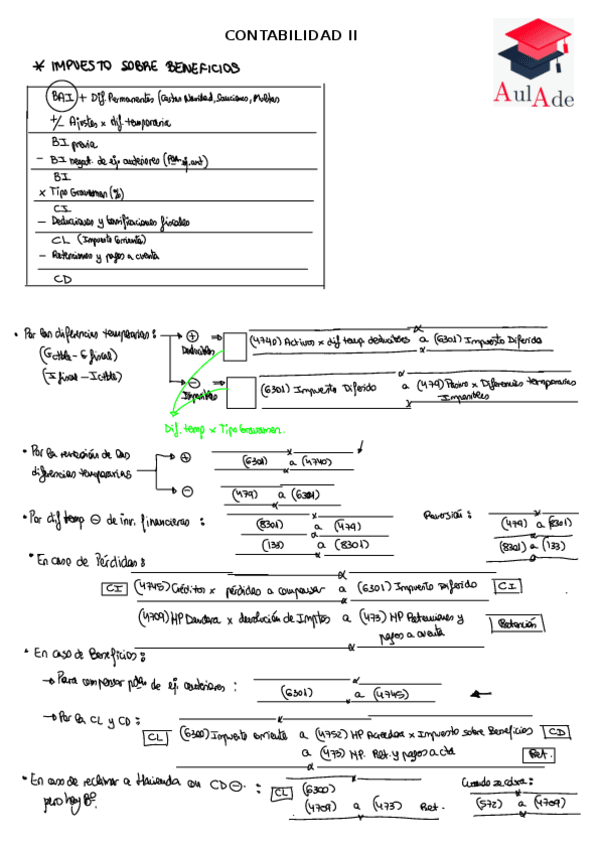 CONTABILIDAD II
AulAde
* IMPUESTO SOBRE BENEFICIOS
BAI + Dif. Permanentes (Gastos Navidad, Sanciones, Multas
+/- Ajustes x dif. temporaria
BI previa
- BI negat. de ej. anteriores (Pdas ej. ant)
BI
x Tipo Gravamen (%)
CI
- Deducciones y bonificaciones fiscales
CL (Impuesto Corriente)
- Retenciones y pagos a cuenta
CD
• Por las diferencias temporarias: → + Deducibles ⇒ (4740) Activos x dif temp deducibles a (6301) Impuesto Diferido
(Gctble - G fiscal)
(I fiscal - Ictble) → - Imponibles ⇒ (6301) Impuesto Diferido a (479) Pasivo x Diferencias temporarias Imponibles
Dif. temp x Tipo Gravamen.
• Por la reversión de las diferencias temporarias → + (6301) a (4740)
→ - (479) a (6301)
• Por dif temp - de inv. financieras: (8301) a (479) Reversión: (479) a (8301)
(133) a (8301) (8301) a (133)
• En caso de Pérdidas:
CI (4745) Créditos x pérdidas a compensar a (6301) Impuesto Diferido CI
(4709) HP Deudora x devolución de Imptos a (473) HP Retenciones y pagos a cuenta Retención
• En caso de Beneficios:
→ Para compensar pdas de ej. anteriores: (6301) a (4745) ←
→ Por la CL y CD: CL (6300) Impuesto corriente a (4752) HP Acreedora x Impuesto sobre Beneficios CD
a (473) HP. Ret. y pagos a cta Ret.
• En caso de reclamar a Hacienda con CD -. : CL (6300) Cuando se cobra:
pero hay Bº (4709) a (473) Ret. (572) a (4709)